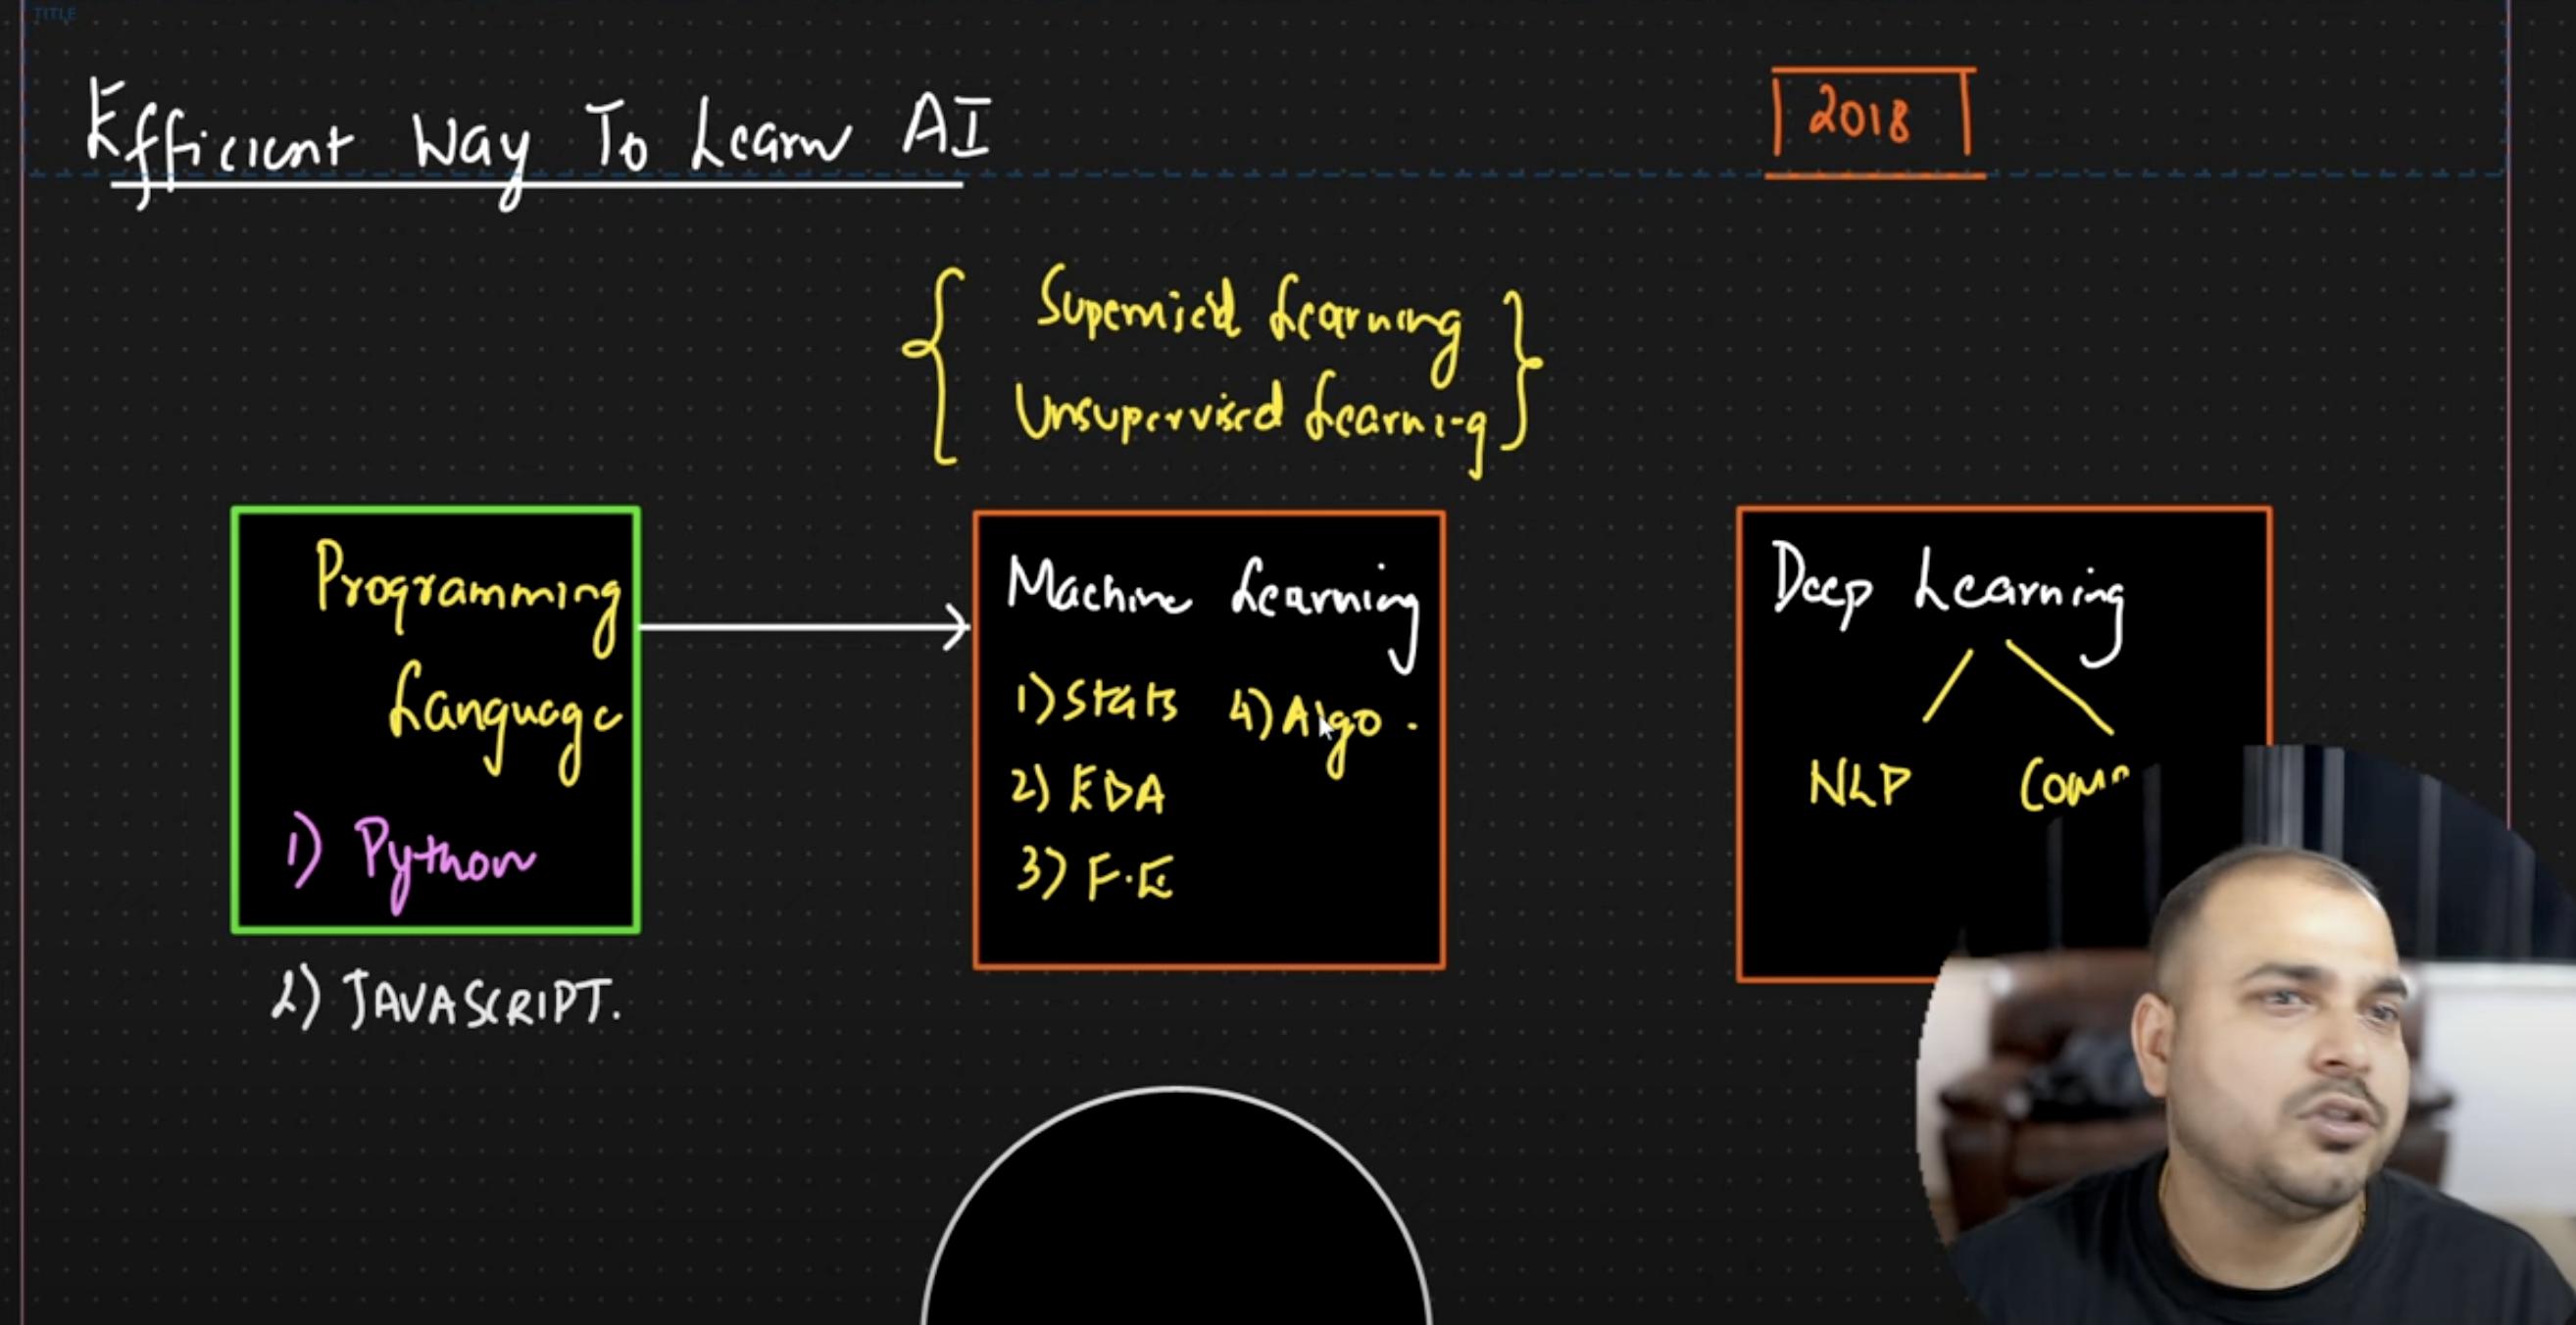 TITLE
Efficient Way To Learn AI
2018
Supervised Learning
Unsupervised Learning
Programming
Language
1) Python
2) JAVASCRIPT.
Machine Learning
1) Stats 4) Algo.
2) EDA
3) F.E
Deep Learning
NLP